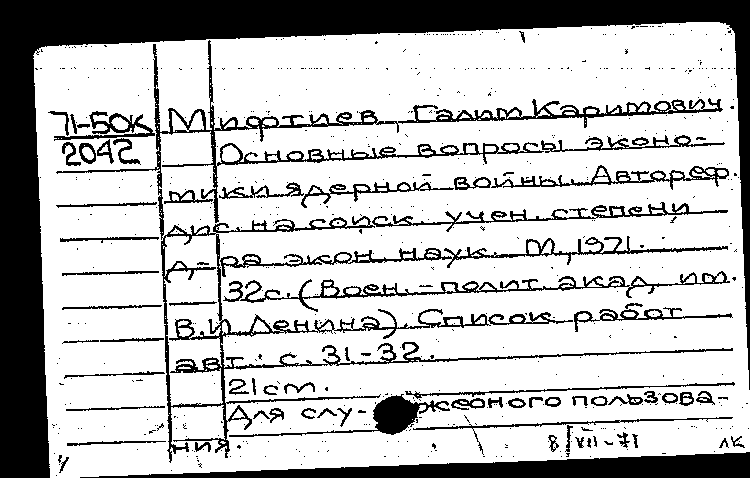 71-БОК Мифтиев, Галим Каримович.
2042 Основные вопросы эконо-
мики ядерной войны. Автореф.
дис. на соиск. учен. степени
д-ра экон. наук. М., 1971.
32с. (Воен.-полит. акад. им.
В.И. Ленина). Список работ
авт.: с. 31-32.
21 cm.
Для слу-жебного пользова-
ния.
8/VII-71 ЛК